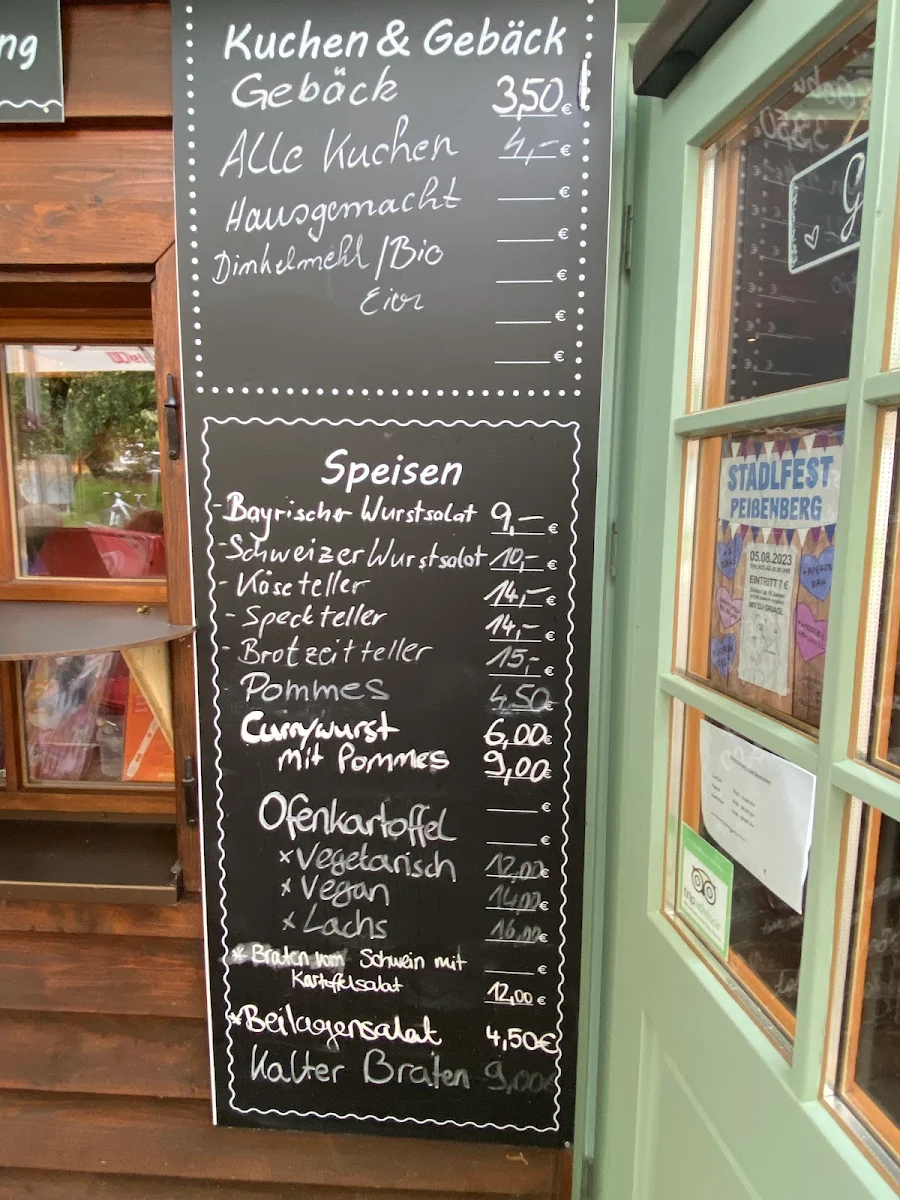 ng
Kuchen & Gebäck
Gebäck 3,50 €
Alle Kuchen 4,- €
Hausgemacht €
Dinkelmehl / Bio €
Eier €
€
€
Speisen
- Bayrischer Wurstsalat 9,- €
- Schweizer Wurstsalat 10,- €
- Käseteller 14,- €
- Speckteller 14,- €
- Brotzeitteller 15,- €
Pommes 4,50 €
Currywurst 6,00 €
mit Pommes 9,00 €
€
Ofenkartoffel €
x Vegetarisch 12,00 €
x Vegan 14,00 €
x Lachs 16,00 €
* Braten vom Schwein mit €
Kartoffelsalat 12,00 €
* Beilagensalat 4,50 €
Kalter Braten 9,00 €
G
STADLFEST
PEIßENBERG
05.08.2023
EINTRITT 7 €